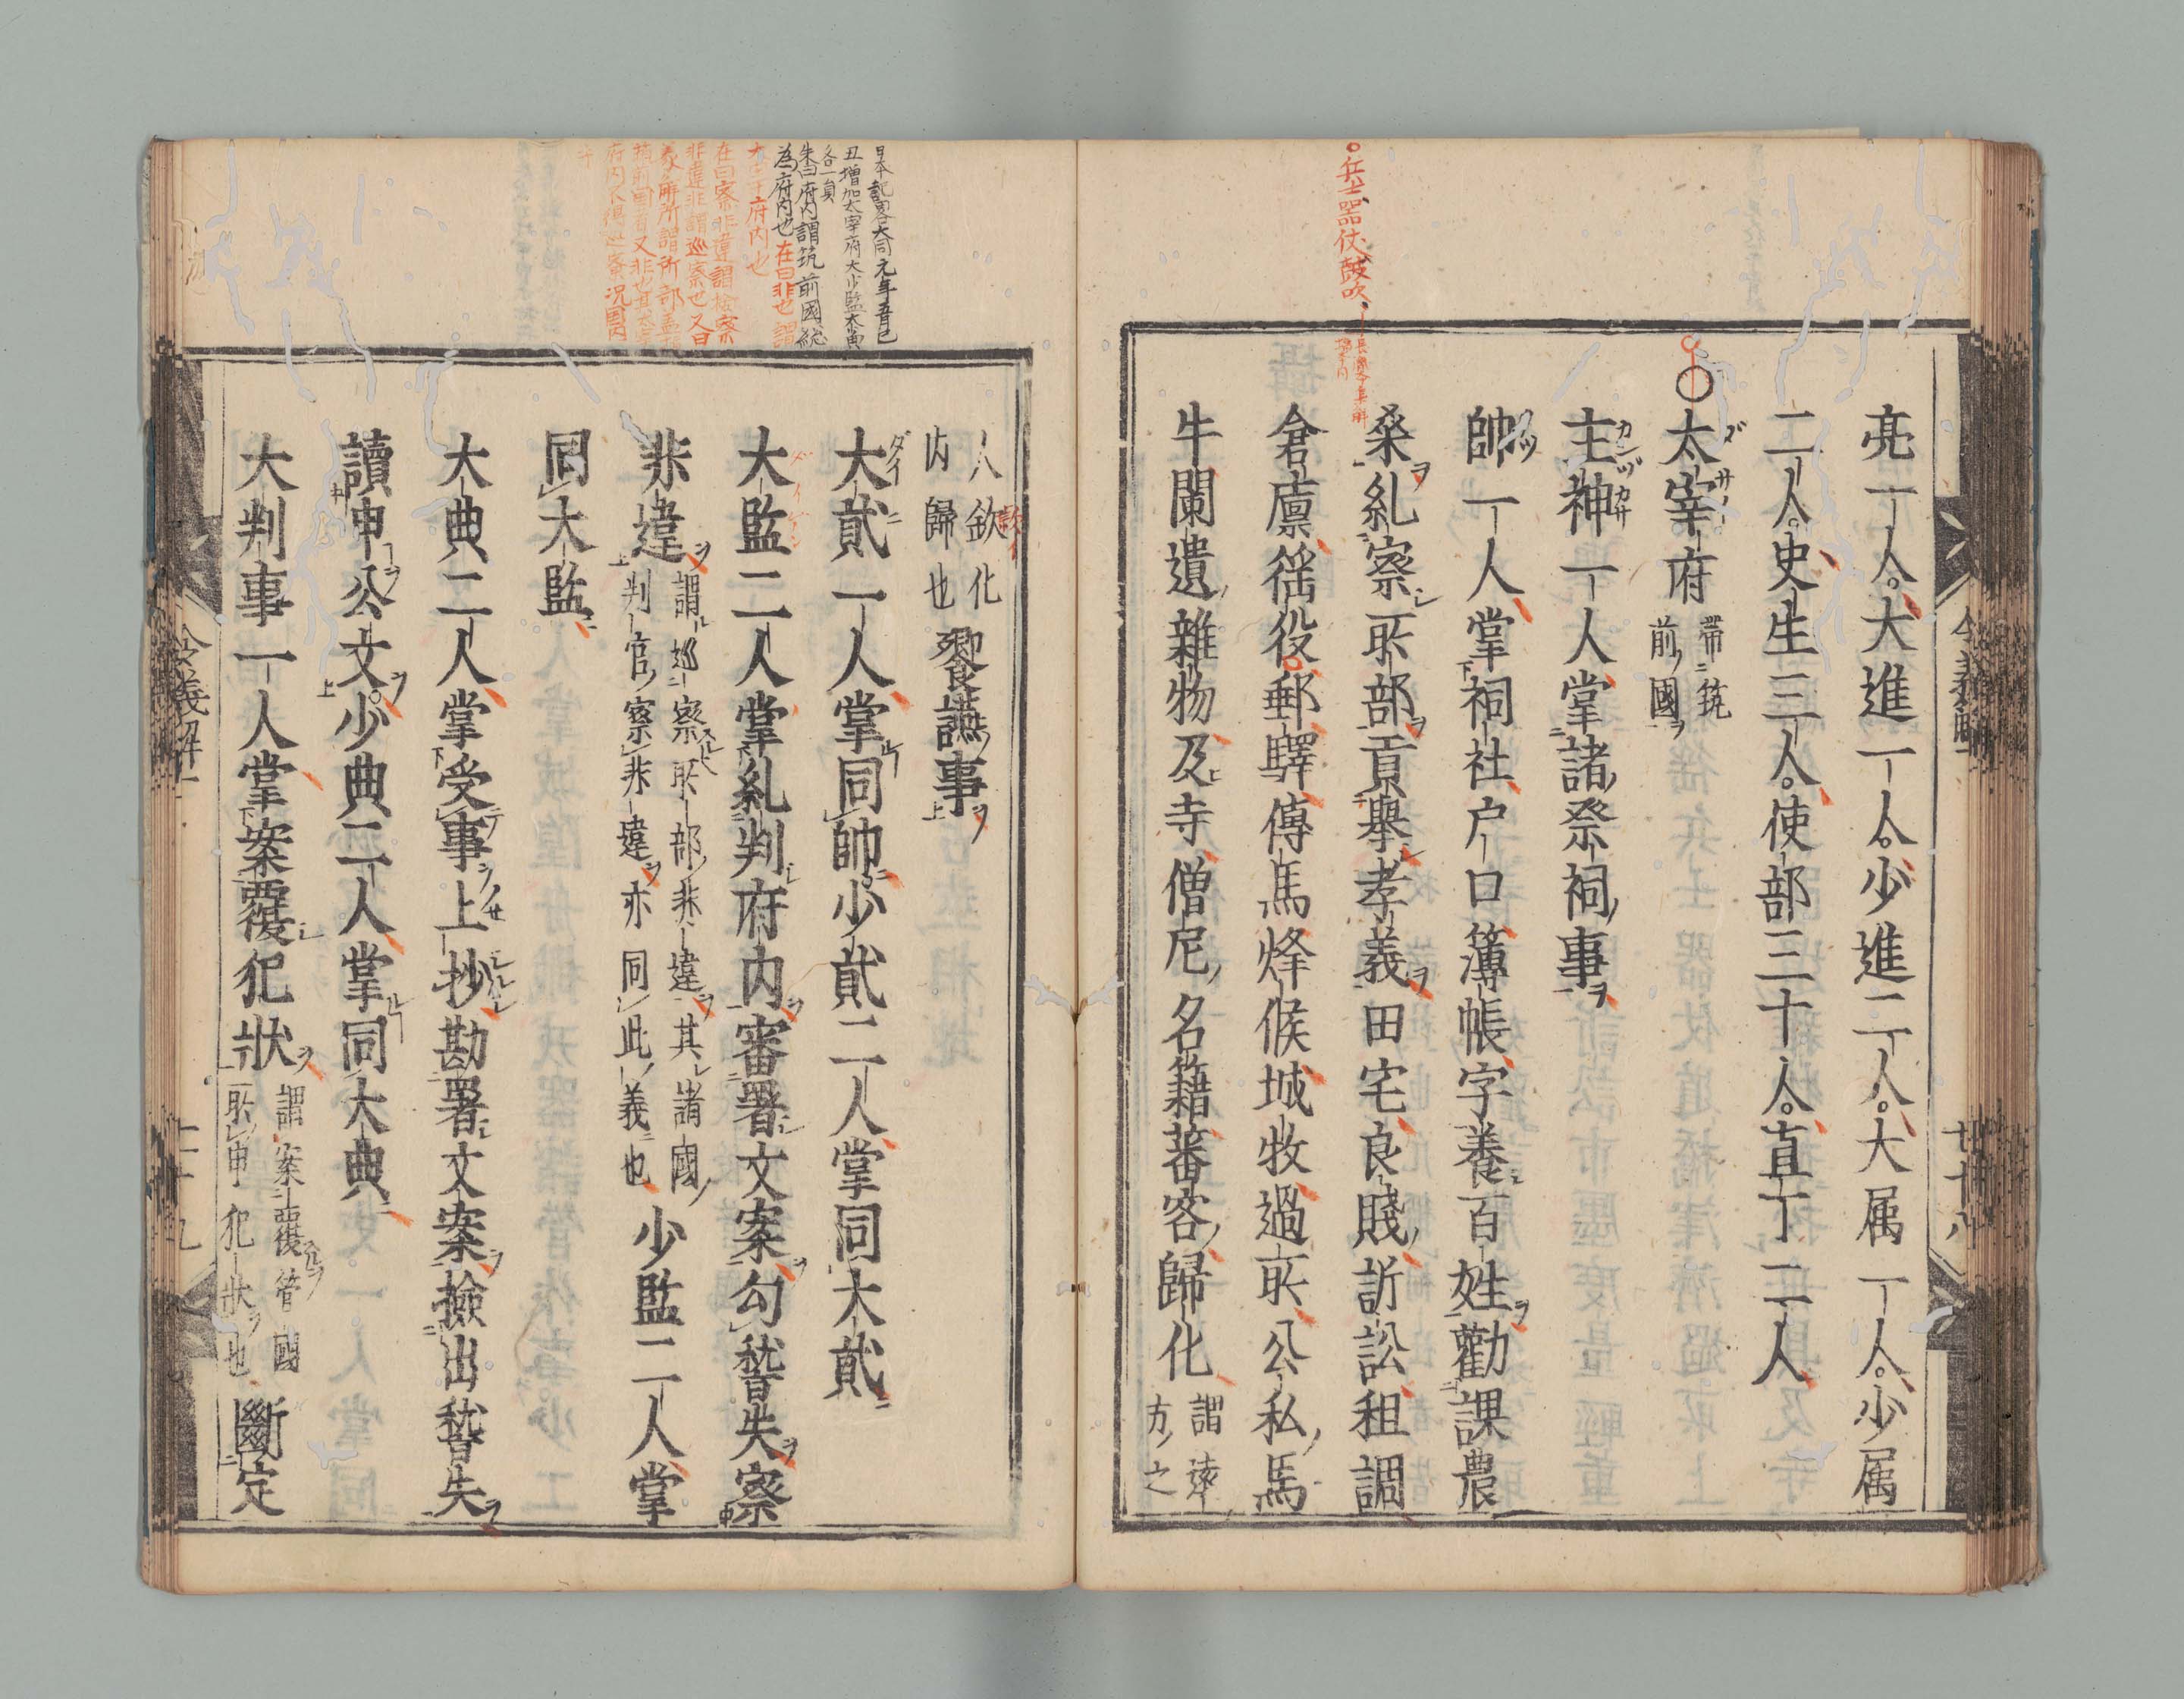 亮一人。大進一人。少進二人。大属一人。少属
二人。史生三人。使部三十人。直丁二人
○太宰府 帯筑
前國
主神一人掌諸祭祠事
帥一人掌祠社户口簿帳字養百姓勸課農
桑糺察所部貢擧孝義田宅良賤訴訟租調
倉廪徭役郵驛傳馬烽候城牧過所公私馬
牛闌遺雜物及寺僧尼名籍蕃客歸化 謂遠
方之
人欽化
内歸也 饗讌事
大貳一人掌同帥少貳二人掌同大貳
大監二人掌糺判府内審署文案勾稽失察
非違 謂巡察所部非違其諸國
判官察非違亦同此義也 少監二人掌
同大監
大典二人掌受事上抄勘署文案撿出稽失
讀申公文少典二人掌同大典
大判事一人掌案覆犯狀 謂案覆管國
所申犯狀也 斷定
令義解一
廿八
令義解一
二十九
○兵士器仗鼓吹
日本記畧大同元年五月己
丑増加太宰府大少監大典
各一員
朱曰府内謂筑前國総
為府内也在曰非也謂
太宰府内也
在曰察非違謂撿察
非違非謂巡察也又曰